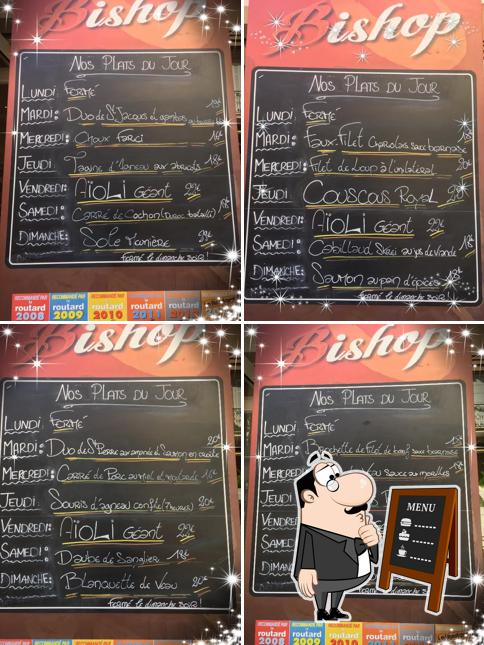 Bishop
Nos Plats du Jour
Lundi: Fermé
Mardi: Duo de St Jacques et
Mercredi: Choux Farci
Jeudi: Tagine d'agneau aux abricots 18€
Vendredi: Aïoli Géant
Samedi: Carré de Cochon
Dimanche: Sole Meunière
fermé le dimanche soir!
RECOMMANDÉ PAR RECOMMANDÉ PAR RECOMMANDÉ PAR
routard routard routard routard routard
2008 2009 2010 2011
Bishop
Nos Plats du Jour
Lundi: Fermé
Mardi: Faux Filet Charolais sauce bearnaise
Mercredi: Filet de Loup à l'unilatéral 20€
Jeudi: Couscous Royal
Vendredi: Aïoli Géant
Samedi: Cabillaud
Dimanche: Saumon au pain d'épices
fermé le dimanche soir!
Bishop
Nos Plats du Jour
Lundi: Fermé
Mardi: Duo de St Pierre aux amandes et Saumon en croûte 20€
Mercredi: Carré de Porc au miel et moutarde
Jeudi: Souris d'agneau confite (7 heures) 20€
Vendredi: Aïoli Géant
Samedi: Daube de Sanglier 18€
Dimanche: Blanquette de Veau 20€
fermé le dimanche soir!
Bishop
Nos Plats du Jour
Lundi: Fermé
Mardi: Brochette de Filet de boeuf sauce bearnaise
Mercredi: sauce aux morilles
Jeudi
Vendredi
Samedi
Dimanche
MENU
routard routard routard
2008 2009 2010